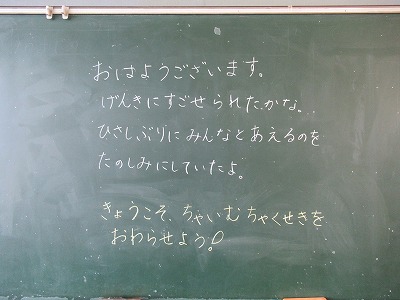 おはようございます。
げんきにすごせられたかな。
ひさしぶりにみんなとあえるのを
たのしみにしていたよ。
きょうこそ、ちゃいむちゃくせきを
おわらせよう!